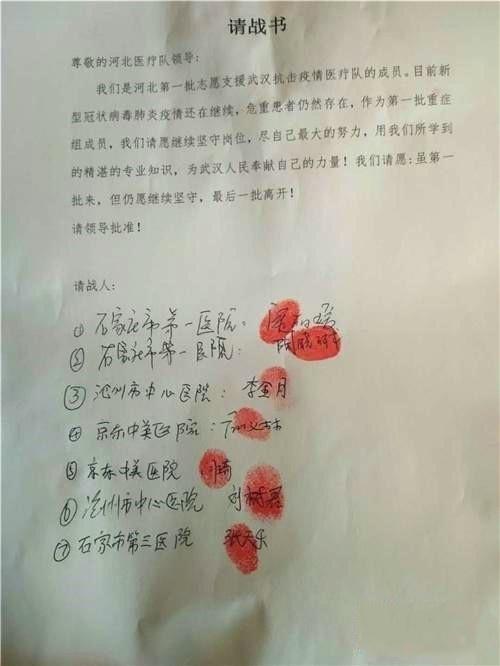 请战书
尊敬的河北医疗队领导:
我们是河北第一批志愿支援武汉抗击疫情医疗队的成员。目前新
型冠状病毒肺炎疫情还在继续，危重患者仍然存在，作为第一批重症
组成员，我们请愿继续坚守岗位，尽自己最大的努力，用我们所学到
的精湛的专业知识，为武汉人民奉献自己的力量！我们请愿:虽第一
批来，但仍愿继续坚守，最后一批离开！
请领导批准！
请战人:
① 石家庄市第一医院:
② 石家庄市第一医院:
③ 沧州市中心医院: 李金月
④ 京东中美医院:
⑤ 京东中美医院
⑥ 沧州市中心医院 刘树君
⑦ 石家市第三医院 张天乐